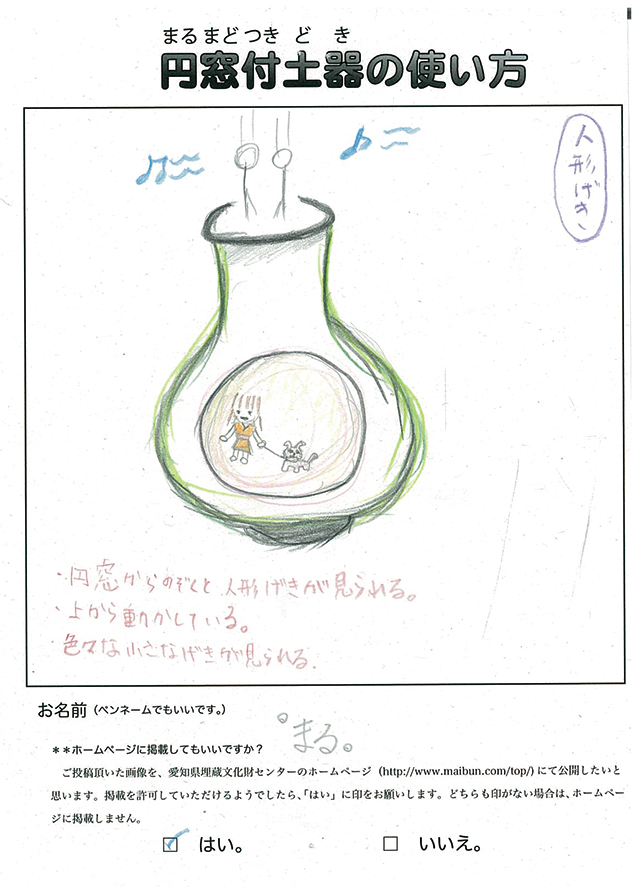 まるまどつきどき
円窓付土器の使い方
人形げき
・円窓からのぞくと人形げきが見られる。
・上から動かしている。
・色々な小さなげきが見られる.
お名前（ペンネームでもいいです。）
まる。
＊＊ホームページに掲載してもいいですか？
ご投稿頂いた画像を、愛知県埋蔵文化財センターのホームページ（http://www.maibun.com/top/）にて公開したいと
思います。掲載を許可していただけるようでしたら、「はい」に印をお願いします。どちらも印がない場合は、ホームペー
ジに掲載しません。
☑ はい。 □ いいえ。